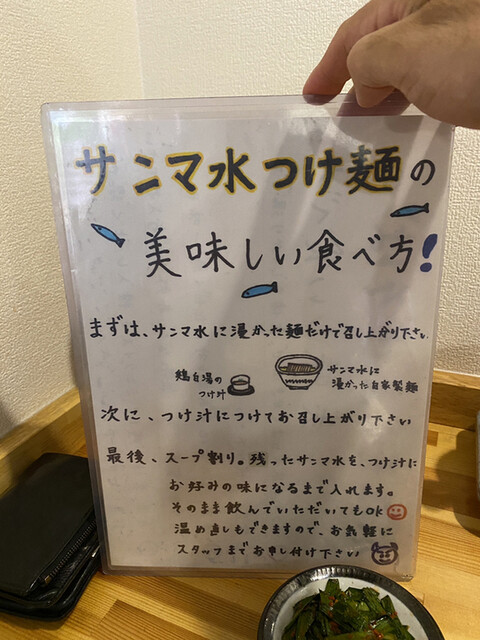 サンマ水つけ麺の
美味しい食べ方!
まずは、サンマ水に浸かった麺だけで召し上がり下さい
鶏白湯の
つけ汁
サンマ水に
浸かった自家製麺
次に、つけ汁につけてお召し上がり下さい
最後、スープ割り。残ったサンマ水を、つけ汁に
お好みの味になるまで入れます。
そのまま飲んでいただいてもOK
温め直しもできますので、お気軽に
スタッフまでお申し付け下さい